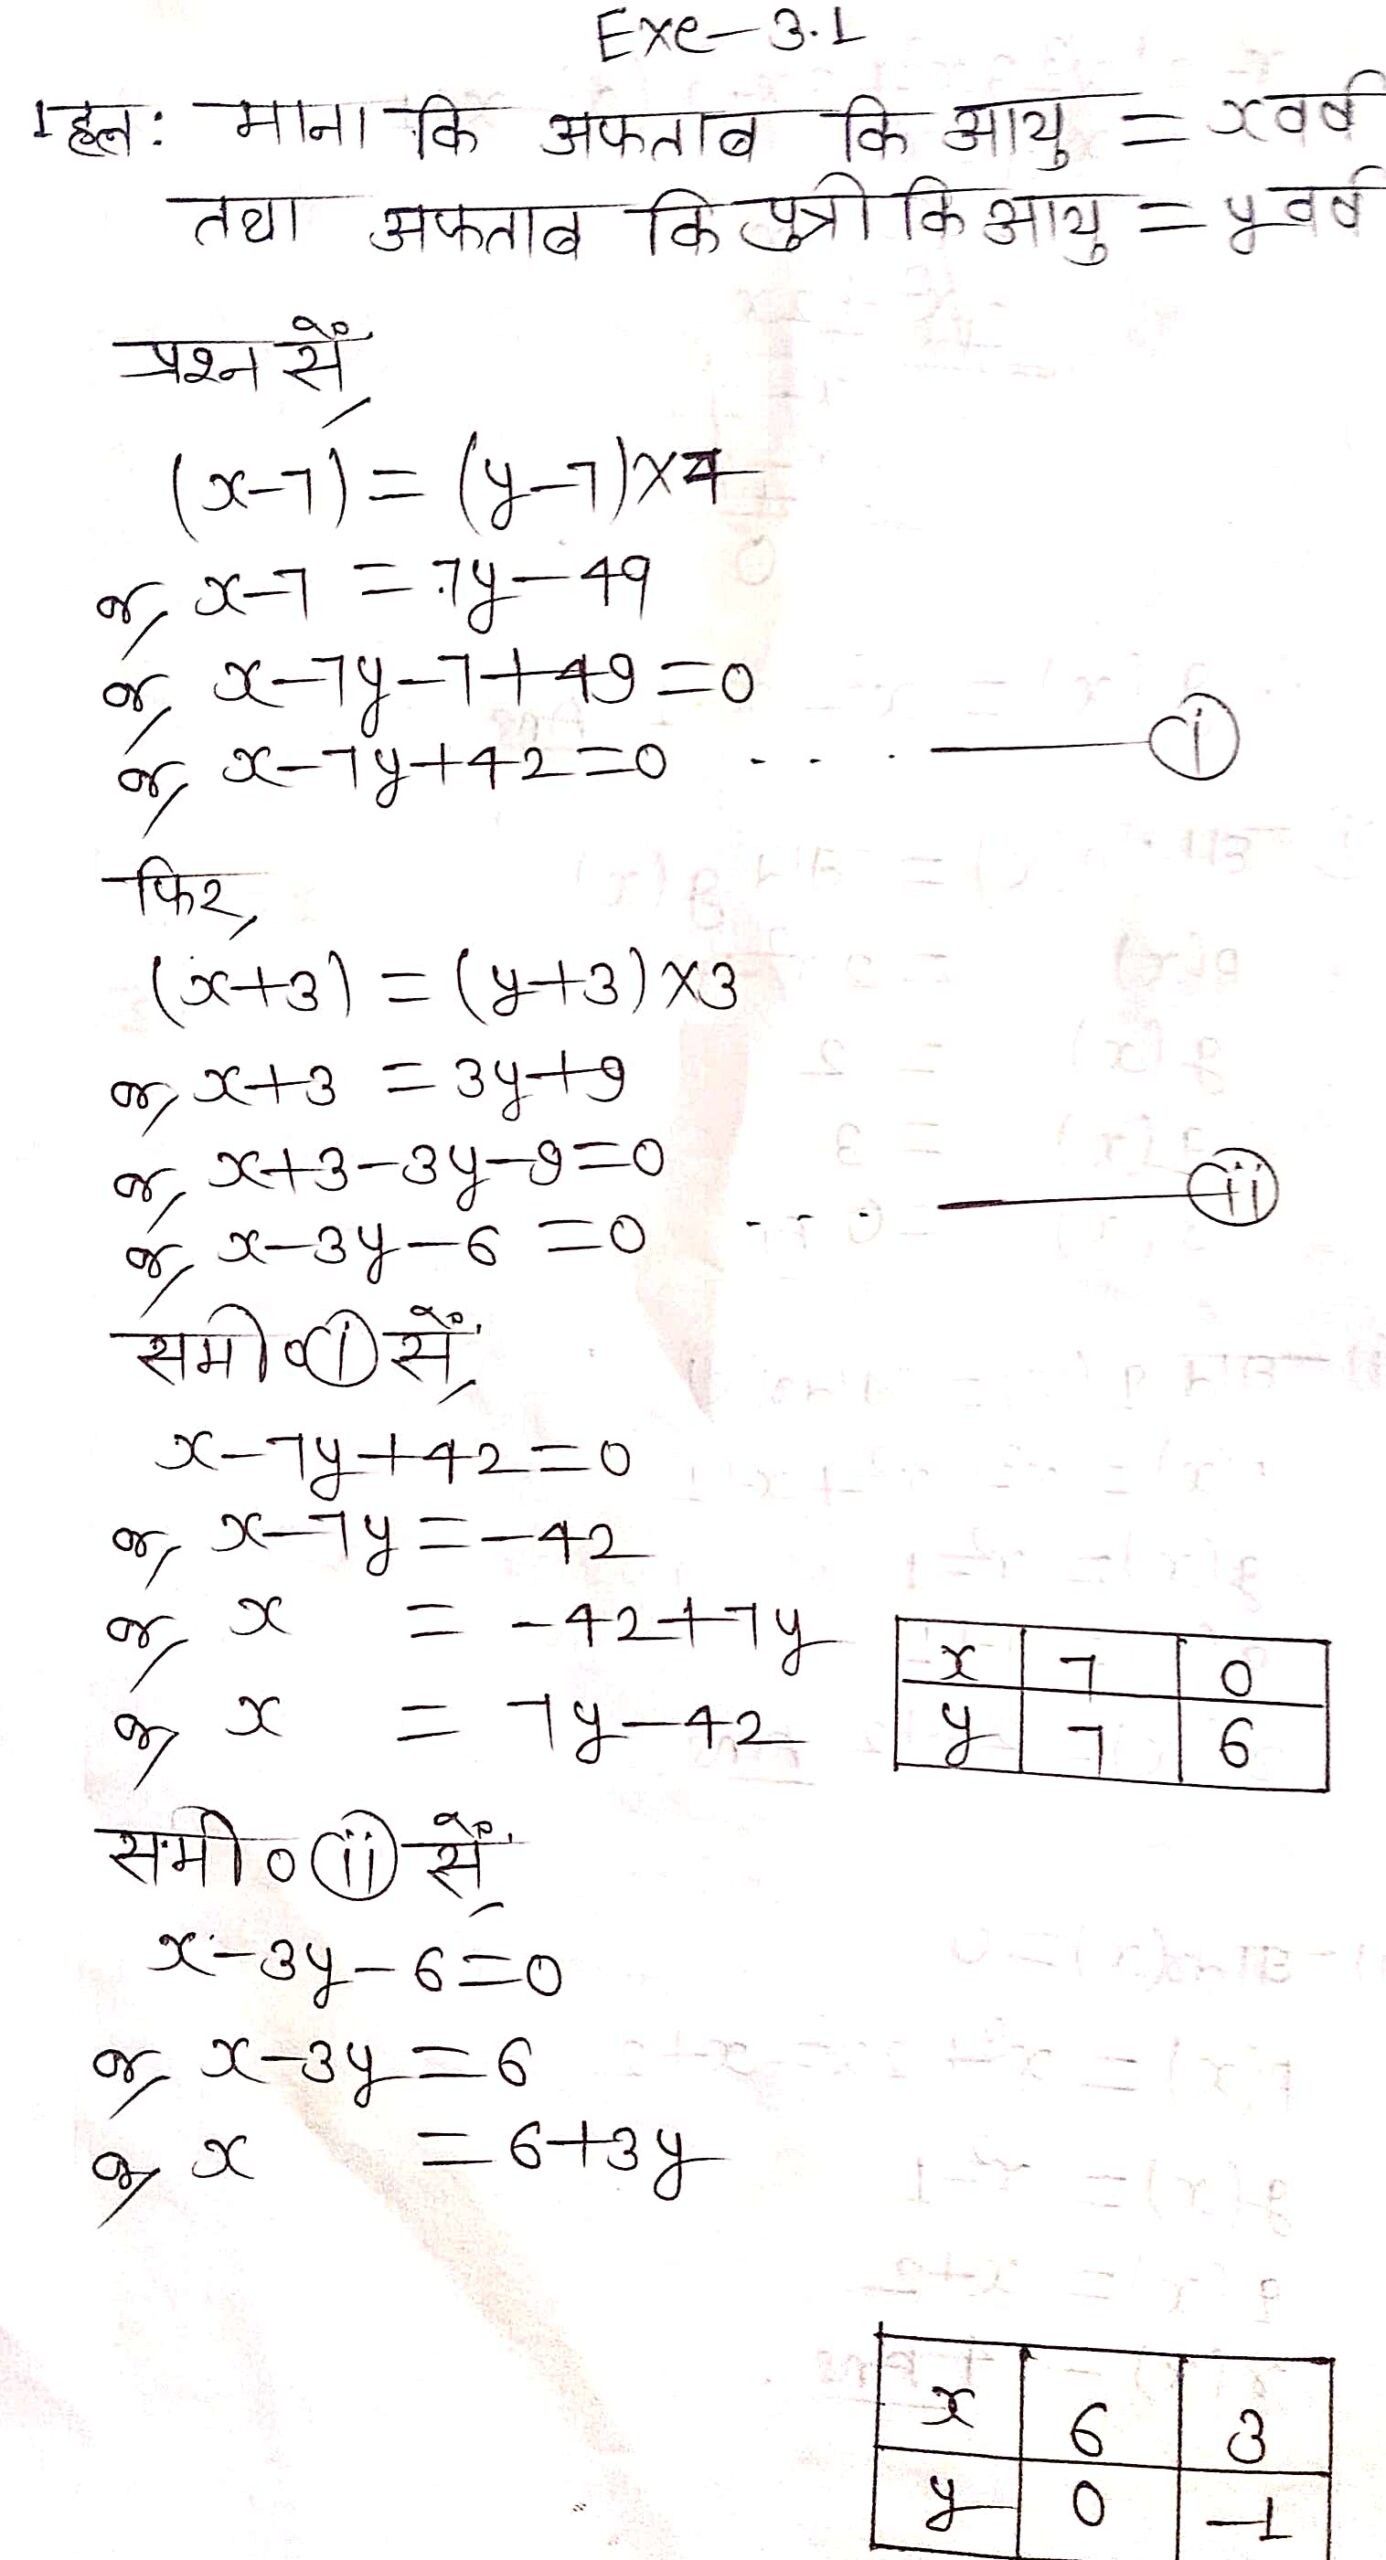 Exe-3.1
1 हल: माना कि अफताब कि आयु = x वर्ष
तथा अफताब कि पुत्री कि आयु = y वर्ष
प्रश्न सें,
(x-7) = (y-7)×7
or, x-7 = 7y-49
or, x-7y-7+49=0
or, x-7y+42=0 ... — (i)
फिर,
(x+3) = (y+3)×3
or, x+3 = 3y+9
or, x+3-3y-9=0
or, x-3y-6=0 ... — (ii)
समी० (i) सें,
x-7y+42=0
or, x-7y=-42
or, x = -42+7y
or, x = 7y-42
x 7 0
y 7 6
समी० (ii) सें,
x-3y-6=0
or, x-3y=6
or, x = 6+3y
x 6 3
y 0 -1